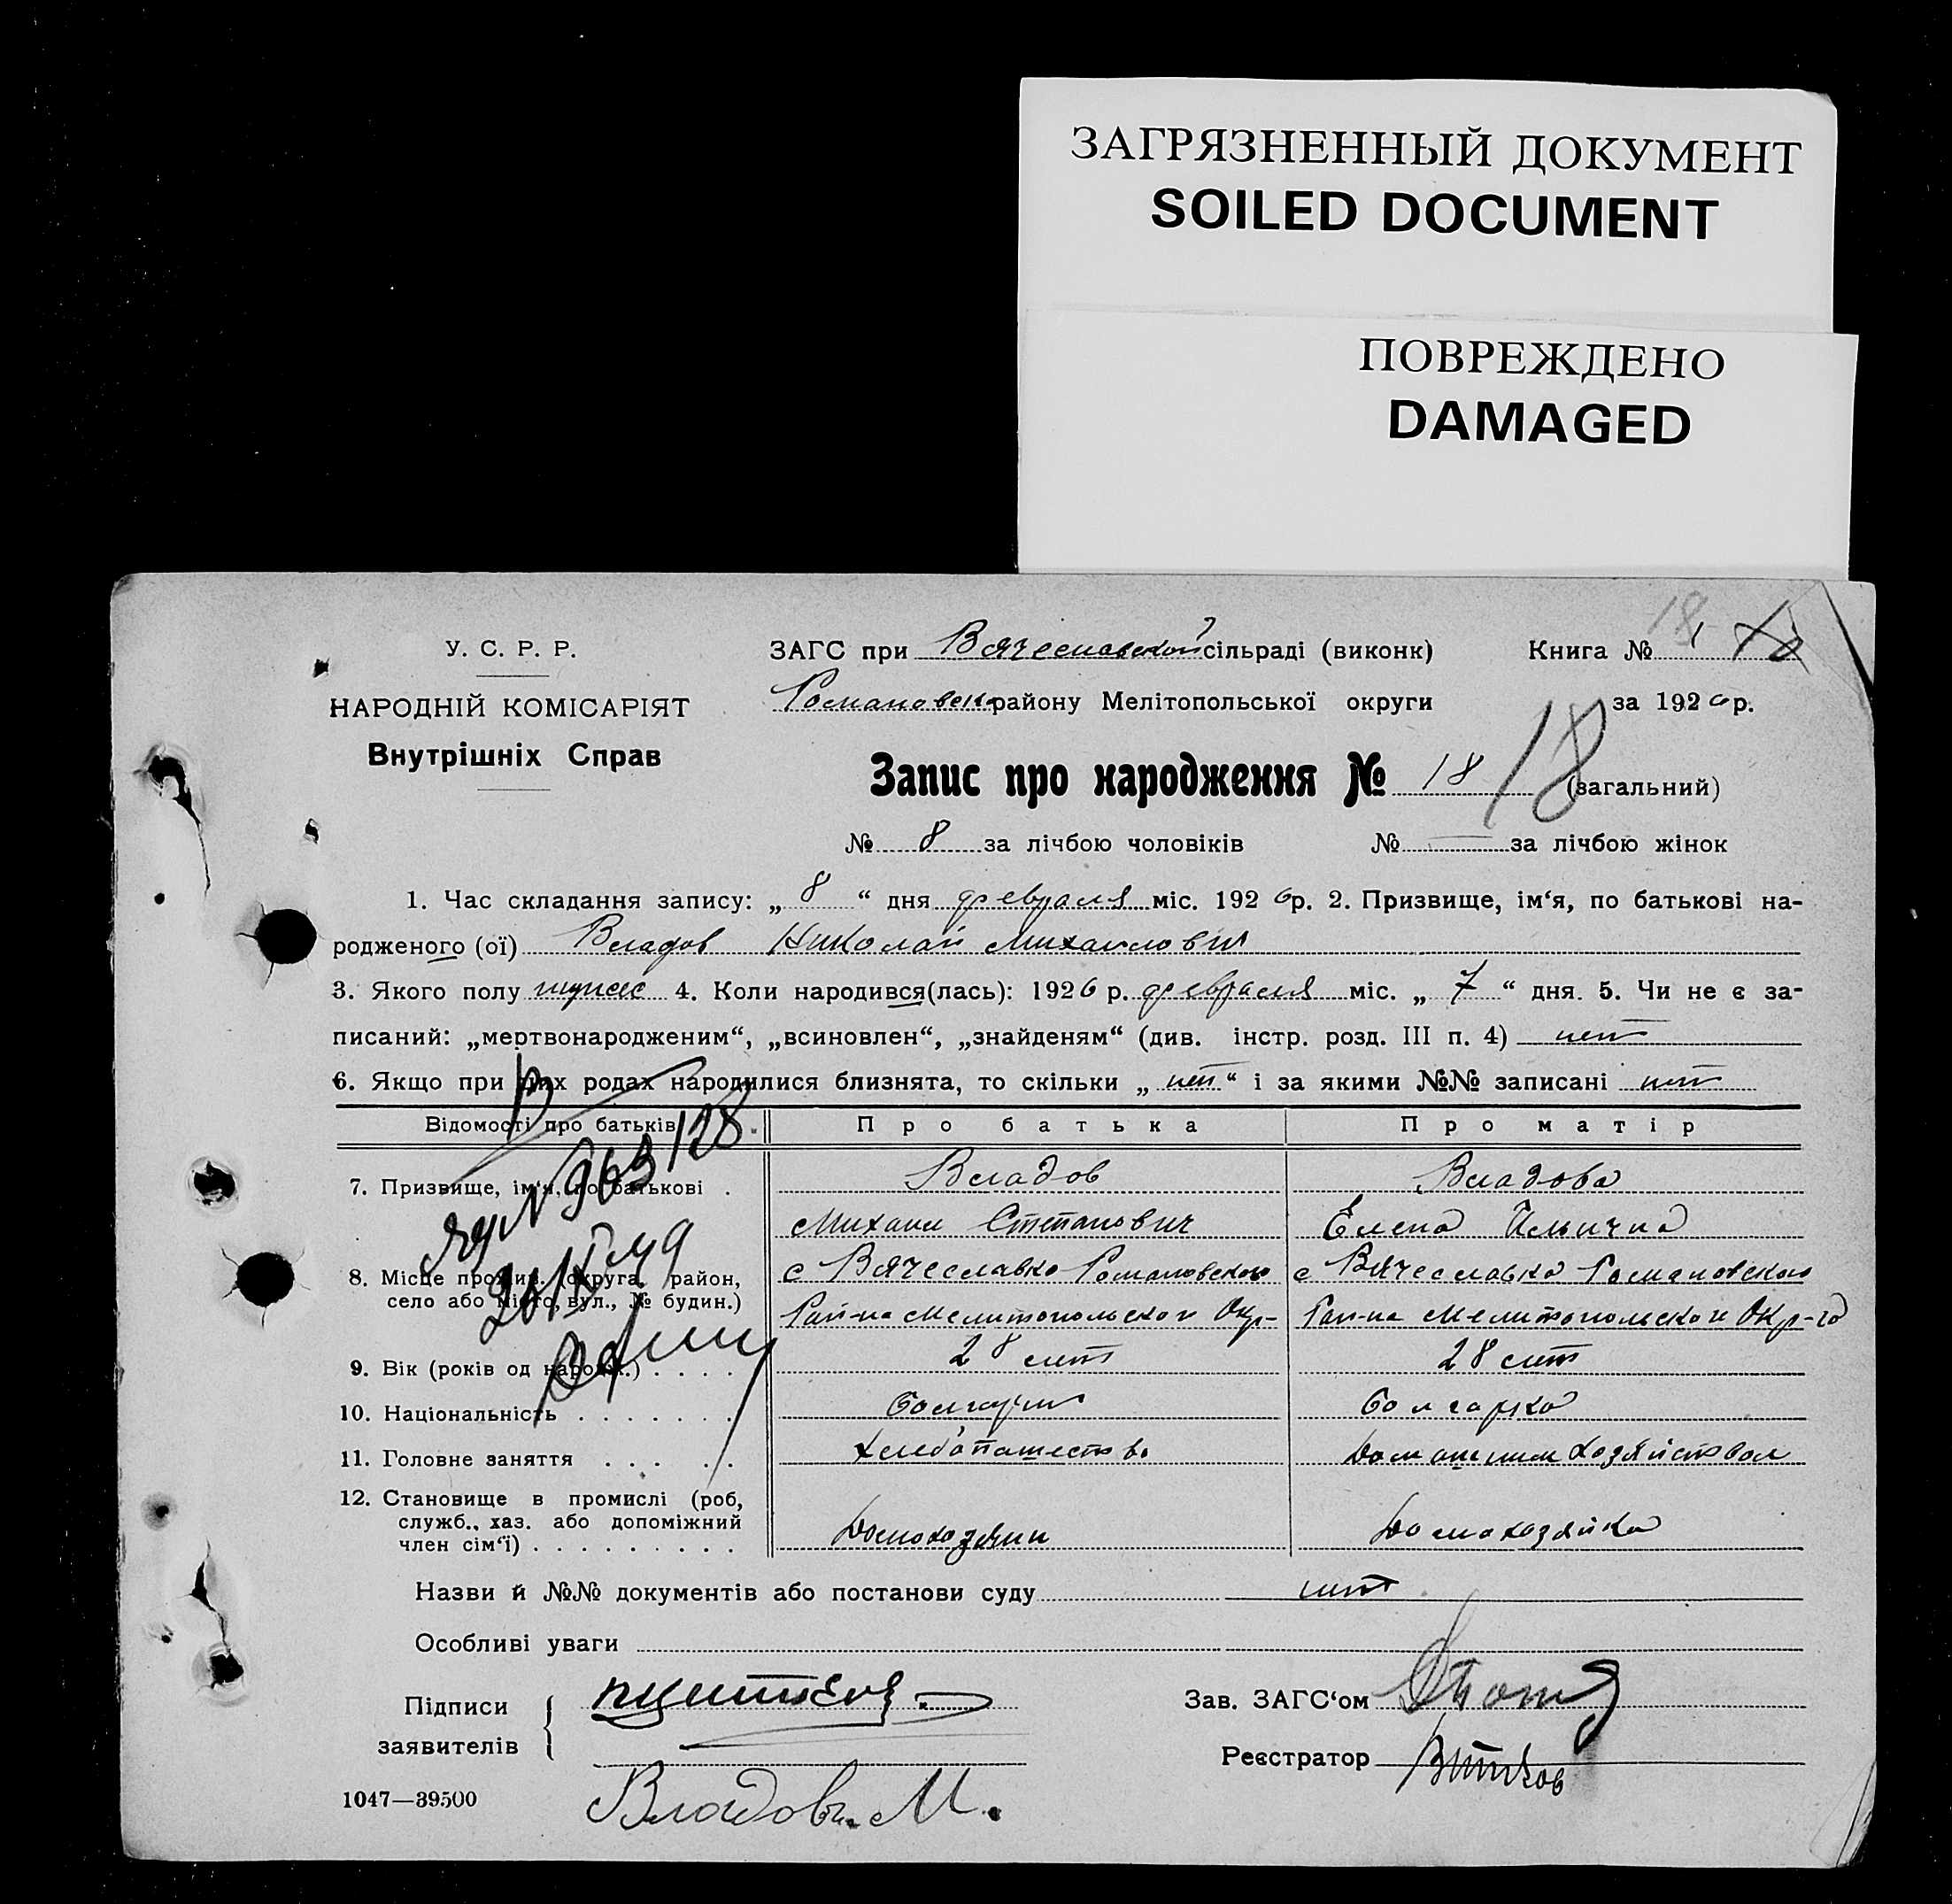 ЗАГРЯЗНЕННЫЙ ДОКУМЕНТ
SOILED DOCUMENT
ПОВРЕЖДЕНО
DAMAGED
У. С. Р. Р.
НАРОДНІЙ КОМІСАРІЯТ
Внутрішніх Справ
ЗАГС при Вячеславской сільраді (виконк)
Книга № 1 18
Романовск району Мелітопольської округи
за 1926 р.
Запис про народження № 18 18 (загальний)
№ 8 за лічбою чоловіків № — за лічбою жінок
1. Час складання запису: „ 8 “ дня февраля міс. 1926 р. 2. Призвище, ім‘я, по батькові на-
родженого (ої) Владов Николай Михайлович
3. Якого полу мужес 4. Коли народився(лась): 1926 р. февраля міс. „ 7 “ дня. 5. Чи не є за-
писаний: „мертвонародженим“, „всиновлен“, „знайденям“ (див. інстр. розд. III п. 4) нет
6. Якщо при цих родах народилися близнята, то скільки „ нет “ і за якими №№ записані нет
Відомості про батьків Про батька Про матір
7. Призвище, ім‘я, по батькові . Владов Владова
Михаил Степанович Елена Ильична
8. Місце прожив. (округа, район, с Вячеславка Романовского с Вячеславка Романовского
село або місто, вул., № будин.) Рай-на Мелитопольской Окр- Рай-на Мелитопольской Окр-га
9. Вік (років од народж.) . . . . 28 лет 28 лет
10. Національність . . . . . . . Болгарин Болгарка
11. Головне заняття . . . . . Хлебопашество Домашним хозяйством
12. Становище в промислі (роб,
служб., хаз. або допоміжний
член сім‘ї) . . . . . . . . . Домохозяин Домохозяйка
Назви й №№ документів або постанови суду нет
Особливі уваги
Підписи
заявителів
Зав. ЗАГС‘ом
Реєстратор
1047—39500
Владов М.